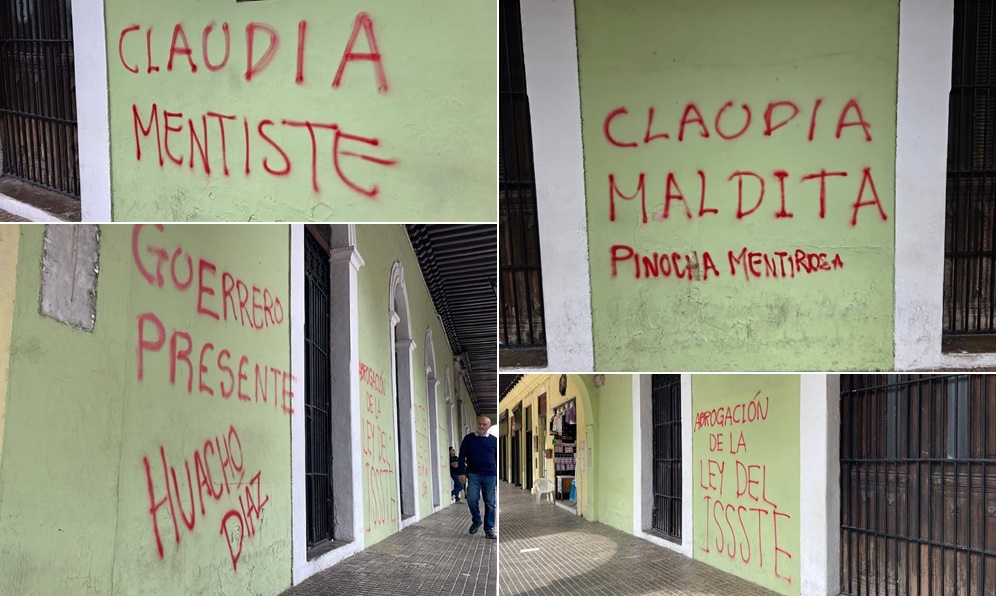 CLAUDIA
MENTISTE
CLAUDIA
MALDITA
PINOCHA MENTIROSA
GUERRERO
PRESENTE
HUACHO
DIAZ
ABROGACIÓN
DE LA
LEY DEL
ISSSTE
ABROGACIÓN
DE LA
LEY DEL
ISSSTE